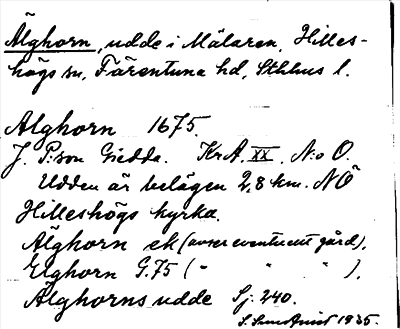 Älghorn, udde i Mälaren, Hilles-
högs sn, Färentuna hd, Sthlms l.
Älghorn 1675.
J. P:son Gedda. KrA. XX. N:o O.
Udden är belägen 2,8 km. NÖ
Hilleshögs kyrka.
Älghorn ek (avser eventuellt gård).
Elghorn G.75 ( " " " ).
Älghorns udde Sj. 240.
S. Sundquist 1935.